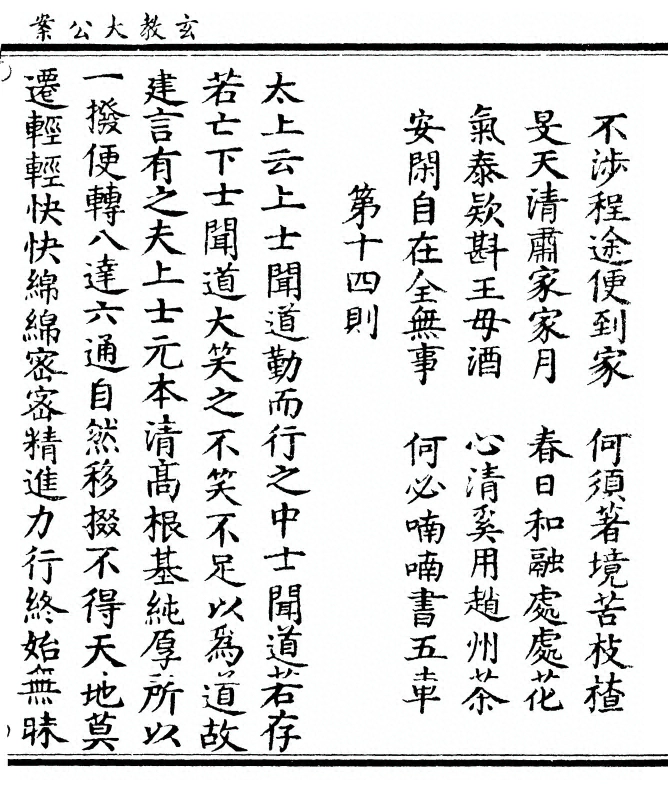 玄教大公案
不涉程途便到家　何須著境苦枝楂
旻天清肅家家月　春日和融處處花
氣泰歘斟王母酒　心清奚用趙州茶
安閑自在全無事　何必喃喃書五車
第十四則
太上云上士聞道勤而行之中士聞道若存
若亡下士聞道大笑之不笑不足以爲道故
建言有之夫上士元本清高根基純厚所以
一撥便轉八達六通自然移掇不得天地莫
遷輕輕快快綿綿密密精進力行終始無昧